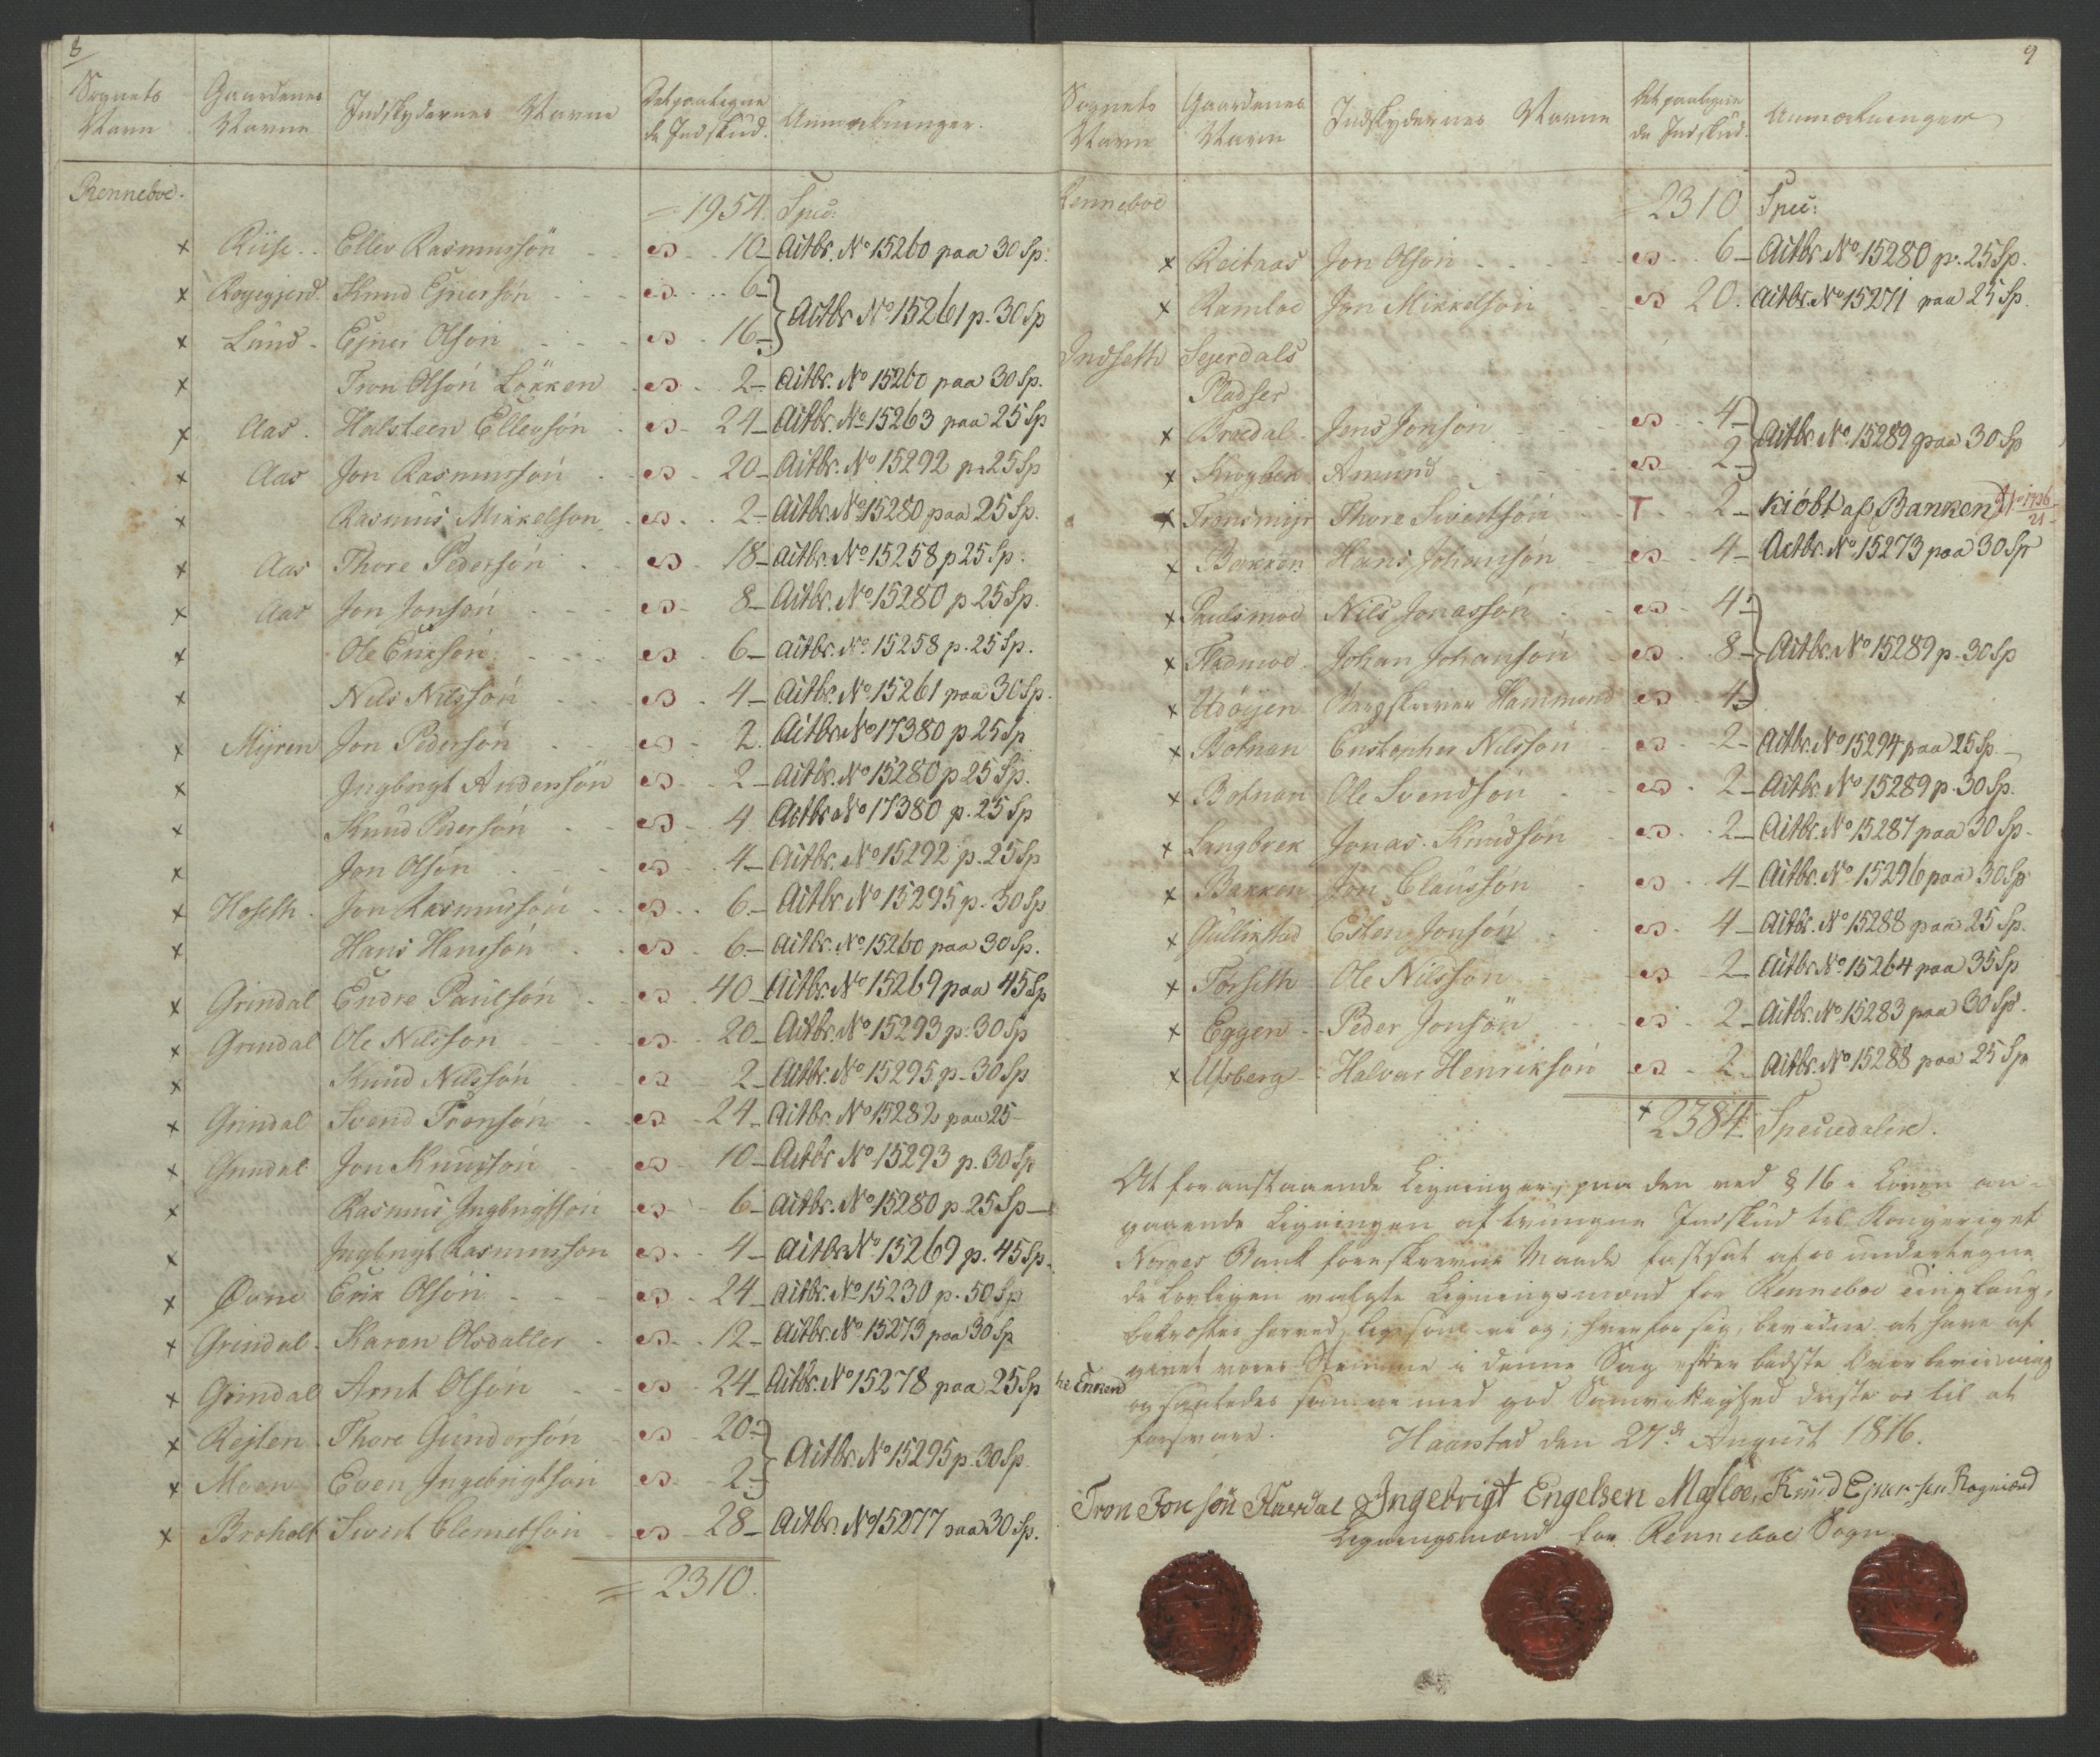 8
Sognets Navn | Gaardenes Navne | Indskydernes Navne | Det paalignede Indskud. | Anmærkninger.
Renneboe.
= 1954. Spec:
x Riise Eller Rasmussön 10 Actbr. No 15260 paa 30 Sp.
x Rogegjerd Knud Ejnersön 6
x Lund Ejner Olsön 16 } Actbr No 15261 p. 30 Sp
x Tron Olsön Lökken 2 Actbr. No 15260 paa 30 Sp.
x Aas Halsteen Ellevsön 24 Actbr. No 15263 paa 25 Sp
x Aas Jon Rasmussön 20 Actbr. No 15292 p. 25 Sp
x Rasmus Mikkelsøn 2 Actbr. No 15280 paa 25 Sp.
x Aas Thore Pedersön 18 Actbr. No 15258 p 25 Sp.
x Aas Jon Jonsön 8 Actbr. No 15280 p 25 Sp.
x Ole Eriksön 6 Actbr. No 15258 p. 25 Sp.
x Nils Nilssön 4 Actbr. No 15261 paa 30 Sp.
x Myren Jon Pedersön 2. Actbr No 17380 p 25 Sp
x Ingbrygt Andersön 2 Actbr. No 15280 p 25 Sp.
x Knud Pedersön 4 Actbr No 17380 p. 25 Sp
x Jon Olsön 4 Actbr. No 15292 p. 25 Sp
x Hoseth Jon Rasmussön 6 Actbr. No 15295 p. 30 Sp
x Hans Hanssön 6 Actbr. No 15260 paa 30 Sp.
x Grindal Endre Paulsön 40 Actbr. No 15269 paa 45 Sp
x Grindal Ole Nilssön 20 Actbr. No 15293 p. 30 Sp
x Knud Nilssön 2 Actbr. No 15295 p. 30 Sp
x Grindal Svend Tronsön 24 Actbr. No 15282 paa 25
x Grindal Jon Knudsön 10 Actbr No 15293 p. 30 Sp
x Rasmus Ingbrigtsön 6 Actbr. No 15280 p. 25 Sp
x Ingbrigt Rasmussön 4 Actbr No 15269 p. 45 Sp.
x Øvne Erik Olsön 24 Actbr. No 15230 p. 50 Sp
x Grindal Karen Olsdatter 12 Actbr. No 15273 paa 30 Sp
x Grindal Arnt Olsön 24 Actbr. No 15278 paa 25 Sp til Enken
x Rejten Thore Gundersön 20
x Moen Even Ingebrigtsön 2 } Actbr. No 15295 p. 30 Sp.
x Broholt Sivert Clemetsön 28 Actbr. No 15277 paa 30 Sp.
= 2310.
9
Sognets Navn | Gaardenes Navn | Indskydernes Navne | Det paalignede Indskud. | Anmærkninger
Renneboe
= 2310 Spec:
x Reitaas Jon Olsön 6 Actbr. No 15280 p. 25 Sp.
x Ramloe Jon Mikkelsön 20. Actbr. No 15271 paa 25 Sp.
Indseth Sejerdals
Pladser
x Broedal Jens Jonsön 4
x Krogben Amund 2 } Actbr. No 15289 paa 30 Sp
x Tronsmyr Thore Sivertsön T 2 kiöbt af Banken
x Bakken Hans Johansön 4 Actbr. No 15273 paa 30 Sp
x Paulsmoe Nils Jonassön 4
x Fladmoe Johan Johansön 8
x Udöyen Bergskriver Hammond 4 } Actbr. No 15289 p. 30 Sp
x Botnan Cristopher Nilssön 2 Actbr. No 15294 paa 25 Sp.
x Botnan Ole Svendsön 2 Actbr. No 15289 p. 30 Sp.
x Langbrek Jonas Knudsön 2 Actbr. No 15287 paa 30 Sp.
x Bakken Jon Claussön 4 Actbr. No 15296 paa 30 Sp
x Gullikstad Esten Jonsön 4 Actbr. No 15288 paa 25 Sp.
x Forseth Ole Nilssön 2 Actbr No 15264 paa 35 Sp
x Eggen Peder Jonsön 2 Actbr. No 15283 paa 30 Sp.
x Ulsberg Halvar Henriksön 2 Actbr. No 15288 paa 25 Sp
x 2384 Speciedaler.
At foranstaaende Ligninger, paa den ved § 16 i Loven an-
gaaende Ligningen af tvungne Indskud til Kongeriget
Norges Bank foreskrevne Maade fastsat af os undertegne
de lovligen valgte Ligningsmænd for Renneboe
saa som vi og, hver for sig, bevidne at have af
givet vores Stemme i denne Sag efter bedste Overbeviisning
og saaledes samme med god Samvittighed trøste os til at
forsvare.
Haarstad den 27de August 1816.
Tron Jonsön Kurdal Ingebrigt Engelsen Mosloe, Knud Ejnersen
Ligningsmænd for Renneboe Sogn.